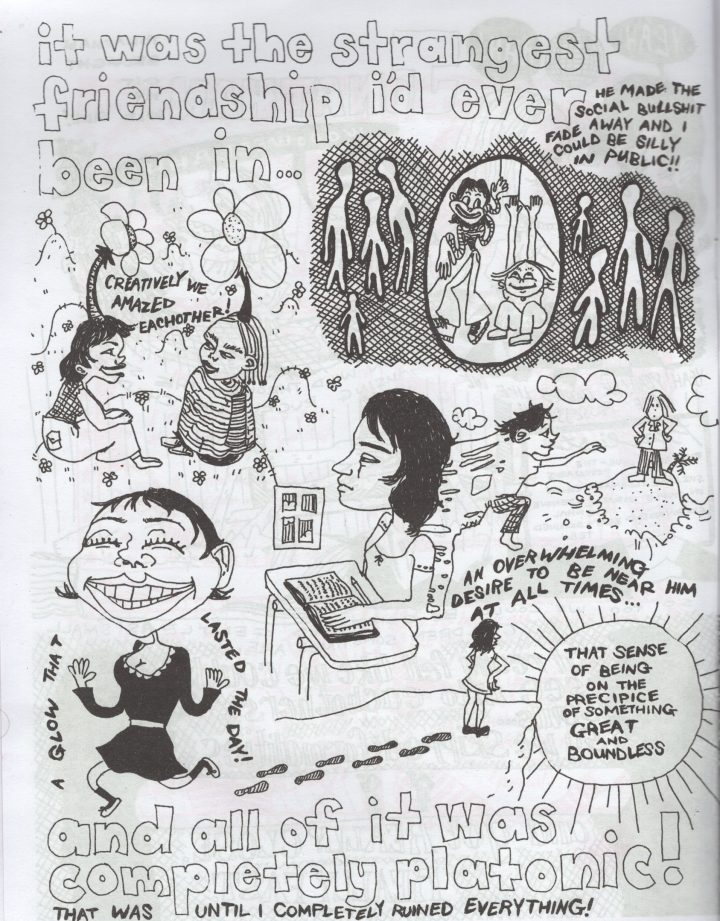 it was the strangest
friendship i'd ever
been in...
HE MADE THE
SOCIAL BULLSHIT
FADE AWAY AND I
COULD BE SILLY
IN PUBLIC!!
CREATIVELY WE
AMAZED
EACHOTHER!
AN OVERWHELMING
DESIRE TO BE NEAR HIM
AT ALL TIMES...
A GLOW THAT
LASTED THE DAY!
THAT SENSE
OF BEING
ON THE
PRECIPICE
OF SOMETHING
GREAT
AND
BOUNDLESS
and all of it was
completely platonic!
THAT WAS UNTIL I COMPLETELY RUINED EVERYTHING!